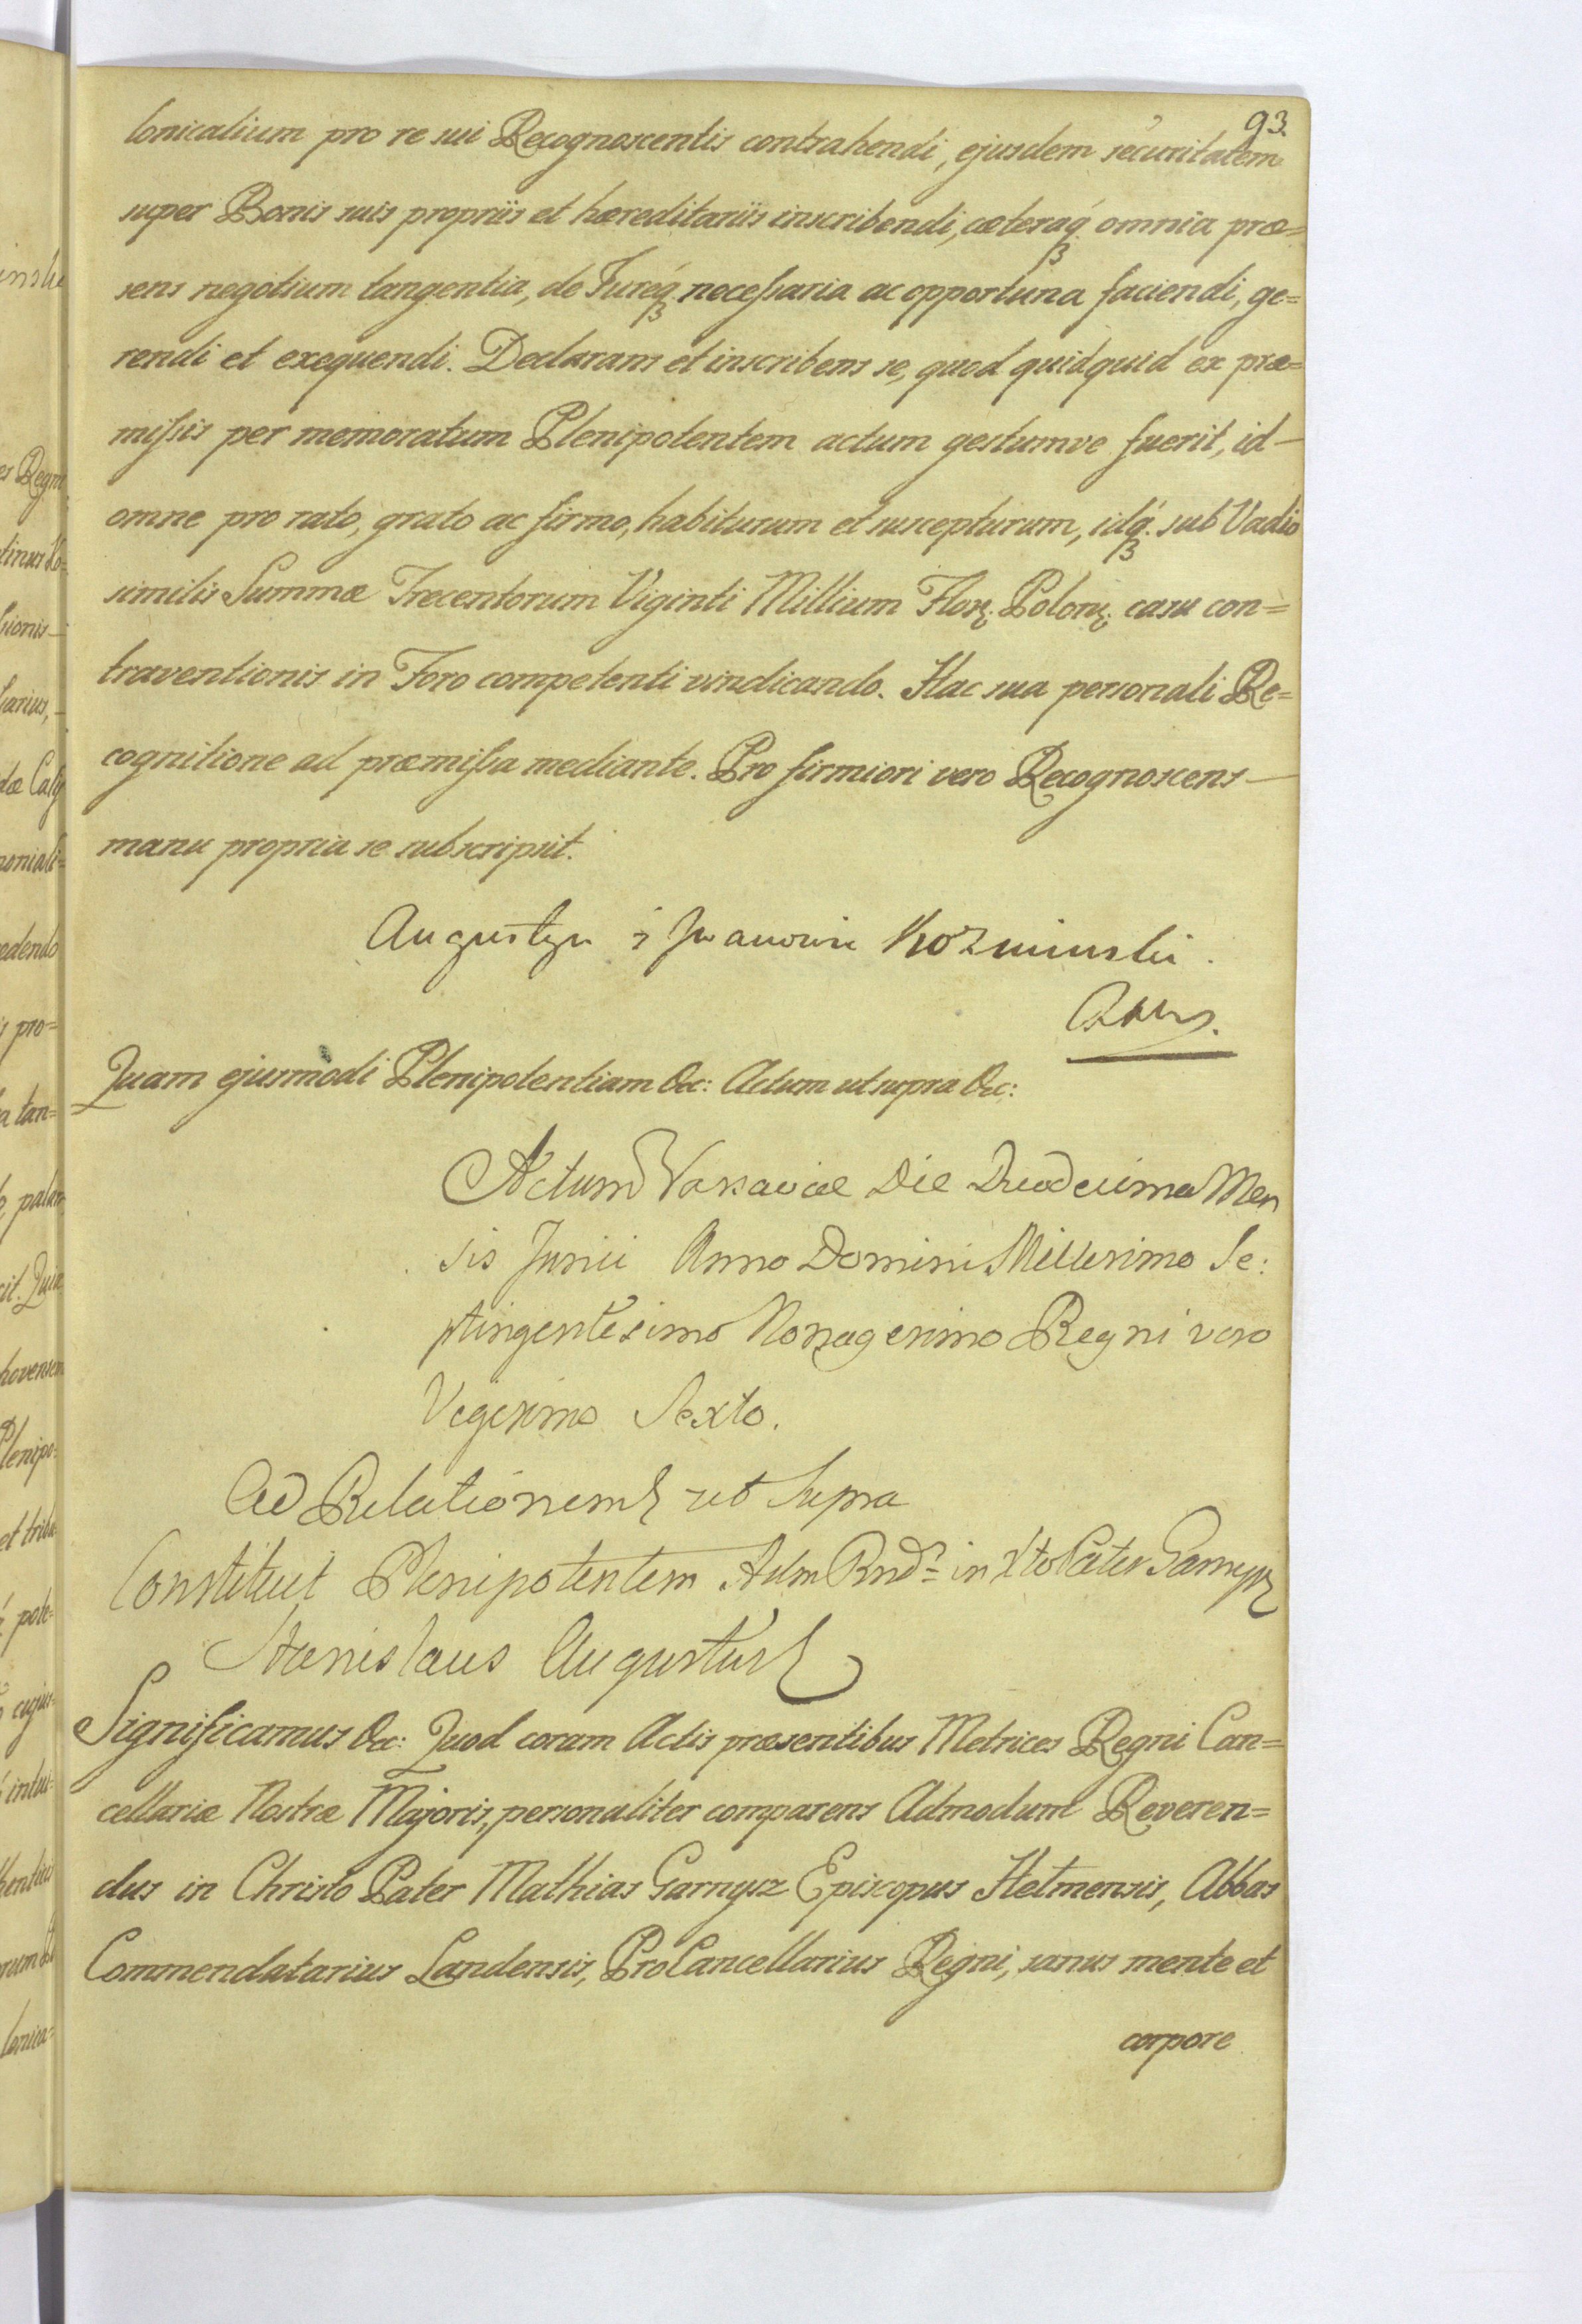 93.
lonicalium pro re sui Recognoscentis contrahendi, ejusdem securitatem
super Bonis suis propriis et hæreditariis inscribendi, cæteraq́ꝫ omnia præ=
sens negotium tangentia, de Jureq́ꝫ necessaria ac opportuna faciendi, ge=
rendi et exequendi. Declarans et inscribens se, quod quidquid ex præ=
missis per memoratum Plenipotentem actum gestumve fuerit, id —
omne pro rato, grato ac firmo, habiturum et suscepturum, idq́ꝫ. sub Vadio
similis Summæ Trecentorum Viginti Millium Flor. Polon. casu con=
traventionis in Foro competenti vindicando. Hac sua personali Re=
cognitione ad præmissa mediante. Pro firmiori vero Recognoscens —
manu propria se subscripsit.
Augustyn z Iwanowic Kozminski.
Quam ejusmodi Plenipotentiam &c: Actum ut supra &c:
Actum Varsaviæ Die Duodecima Men
sis Junii Anno Domini Millesimo Se:
ptingentesimo Nonagesimo Regni vero
Vigesimo Sexto.
Ad Relationem ut Supra
Constituit Plenipotentem Adm Rnd? in Xto Pater Garnysz
Stanislaus Augustus
Significamus &c: Quod coram Actis præsentibus Metrices Regni Can=
cellariæ Nostræ Majoris, personaliter comparens Admodum Reveren=
dus in Christo Pater Mathias Garnysz Episcopus Helmensis, Abbas
Commendatarius Landensis, ProCancellarius Regni, sanus mente et
corpore